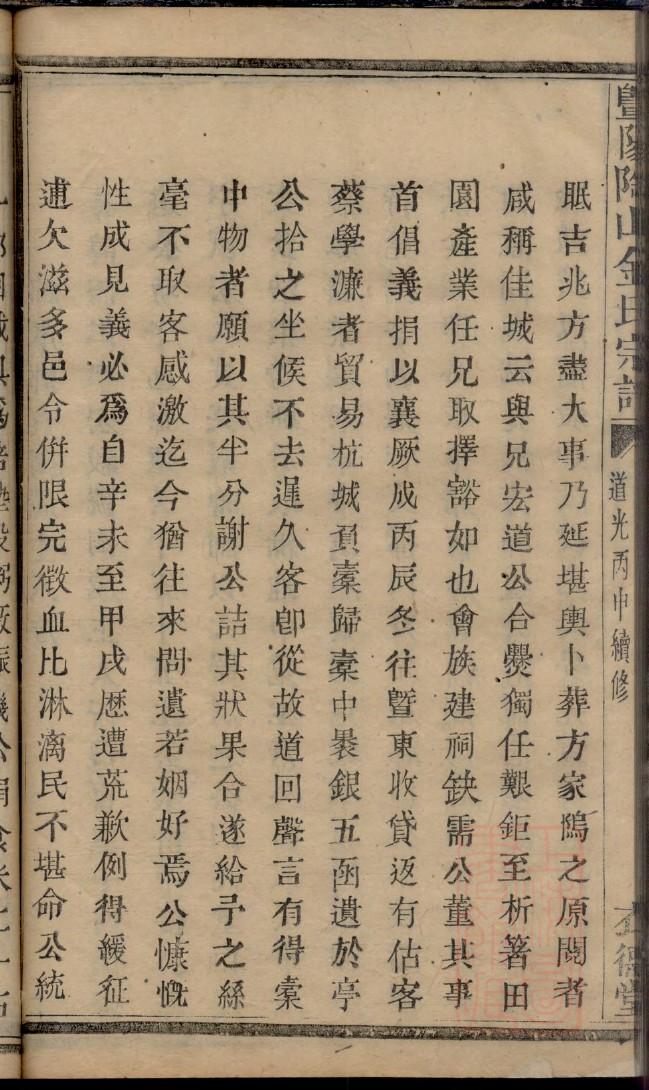 暨陽陶山金氏宗譜
道光丙申續修
眠吉兆方盡大事乃延堪輿卜葬方家隝之原閱者
咸稱佳城云與兄宏道公合㸑獨任艱鉅至析箸田
園產業任兄取擇豁如也會族建祠缺需公董其事
首倡義捐以襄厥成丙辰冬往暨東收貸返有估客
蔡學濂者貿易杭城負橐歸橐中裹銀五函遺於亭
公拾之坐候不去遲久客卽從故道回聲言有得橐
中物者願以其半分謝公詰其狀果合遂給予之絲
毫不取客感激迄今猶往來問遺若姻好焉公慷慨
性成見義必爲自辛未至甲戌歷遭荒歉例得緩征
逋欠滋多邑令併限完徵血比淋漓民不堪命公統